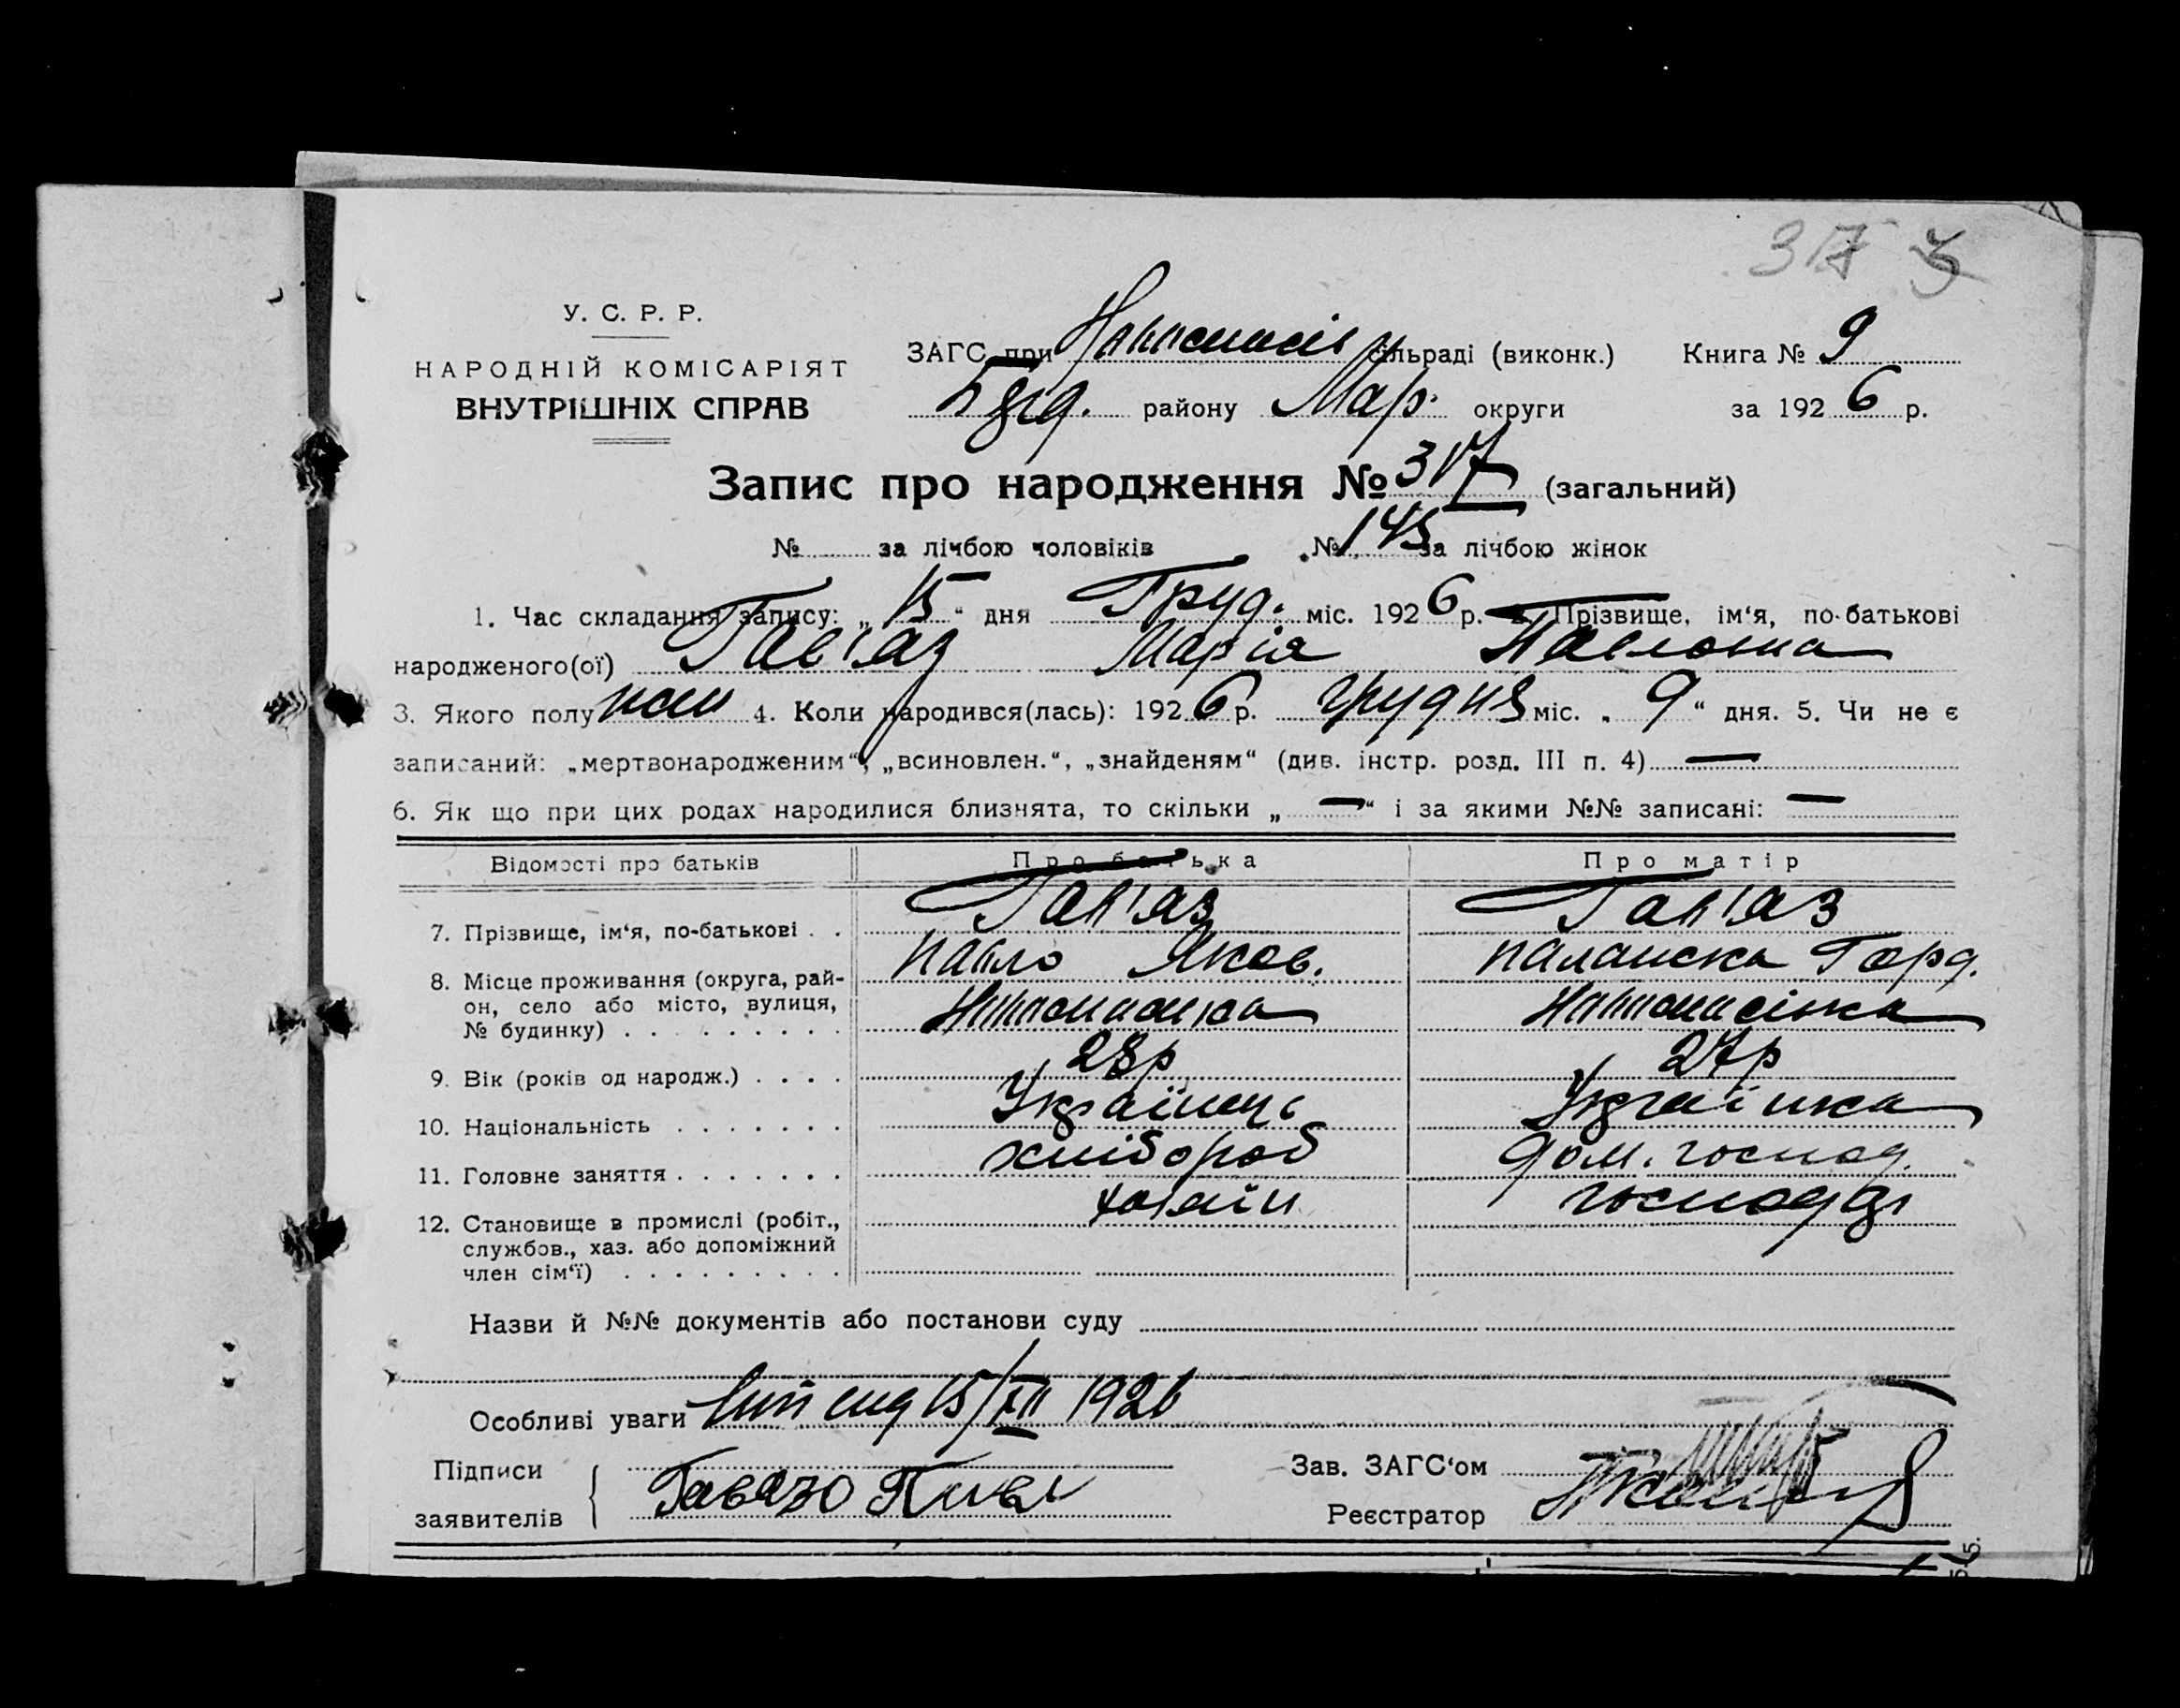 317
У. С. Р. Р.
НАРОДНІЙ КОМІСАРІЯТ
ВНУТРІШНІХ СПРАВ
ЗАГС при сільраді (виконк.) Книга № 9
району Мар. округи за 1926 р.
Запис про народження № 317 (загальний)
№ за лічбою чоловіків № 145 за лічбою жінок
1. Час складання запису: „15“ дня Груд. міс. 1926 р. 2. Прізвище, ім‘я, по-батькові
народженого(ої) Гав'яз Марія Павловна
3. Якого полу жін 4. Коли народився(лась): 1926 р. грудня міс. „9“ дня. 5. Чи не є
записаний: „мертвонародженим“, „всиновлен.“, „знайденям“ (див. інстр. розд. III п. 4) —
6. Як що при цих родах народилися близнята, то скільки „—“ і за якими №№ записані: —
Відомості про батьків Про батька Про матір
Гав'яз Гав'яз
7. Прізвище, ім‘я, по-батькові Павло Яков. Горд.
8. Місце проживання (округа, рай-
он, село або місто, вулиця,
№ будинку)
9. Вік (років од народж.) 28р 27р
10. Національність Українець Українка
11. Головне заняття хлібороб дом. господ.
12. Становище в промислі (робіт.,
службов., хаз. або допоміжний
член сім‘ї)
хазяїн
Назви й №№ документів або постанови суду
Особливі уваги 15/XII 1926
Підписи
заявителів
Зав. ЗАГС‘ом
Реєстратор